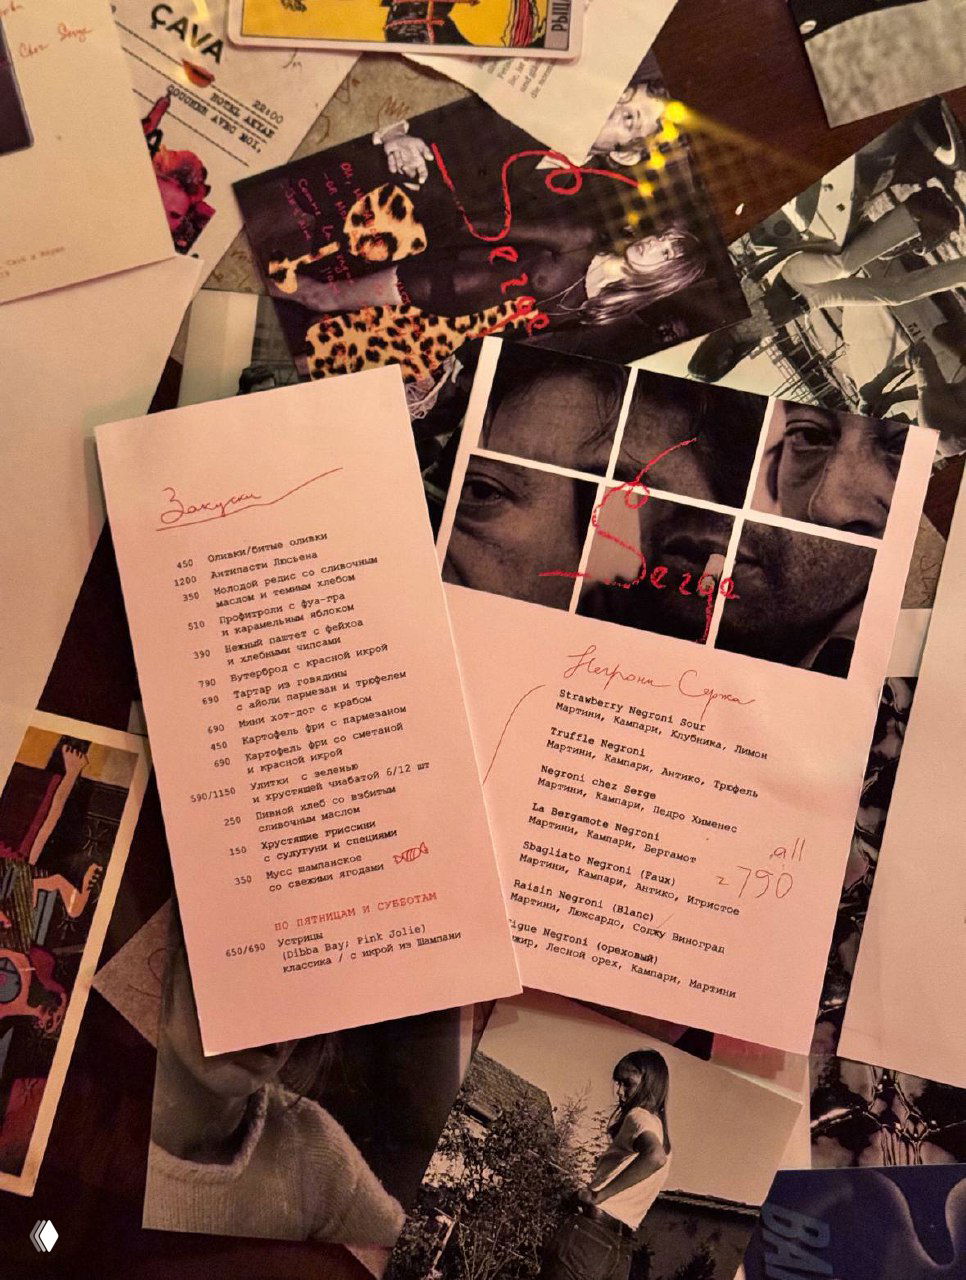 Chez Serge
ÇAVA
22:00
HOTEL AMZAR
COUCHER AVEC MOI,
РЫЦ
Serge
Serge
Закуски
450 Оливки/битые оливки
1200 Антипасти Люсьена
350 Молодой редис со сливочным
маслом и темным хлебом
510 Профитроли с фуа-гра
и карамельным яблоком
390 Нежный паштет с фейхоа
и хлебными чипсами
790 Бутерброд с красной икрой
690 Тартар из говядины
с айоли пармезан и трюфелем
690 Мини хот-дог с крабом
450 Картофель фри с пармезаном
690 Картофель фри со сметаной
и красной икрой
590/1150 Улитки с зеленью
и хрустящей чиабатой 6/12 шт
250 Пивной хлеб со взбитым
сливочным маслом
150 Хрустящие гриссини
с сулугуни и специями
350 Мусс шампанское
со свежими ягодами
ПО ПЯТНИЦАМ И СУББОТАМ
650/690 Устрицы
(Dibba Bay; Pink Jolie)
классика / с икрой из Шампани
Негрони Сержа
Strawberry Negroni Sour
Мартини, Кампари, Клубника, Лимон
Truffle Negroni
Мартини, Кампари, Антико, Трюфель
Negroni chez Serge
Мартини, Кампари, Педро Хименес
La Bergamote Negroni
Мартини, Кампари, Бергамот
Sbagliato Negroni (Faux)
Мартини, Кампари, Антико, Игристое
all
790
Raisin Negroni (Blanc)
Мартини, Люксардо, Соджу Виноград
igue Negroni (ореховый)
жир, Лесной орех, Кампари, Мартини
BA